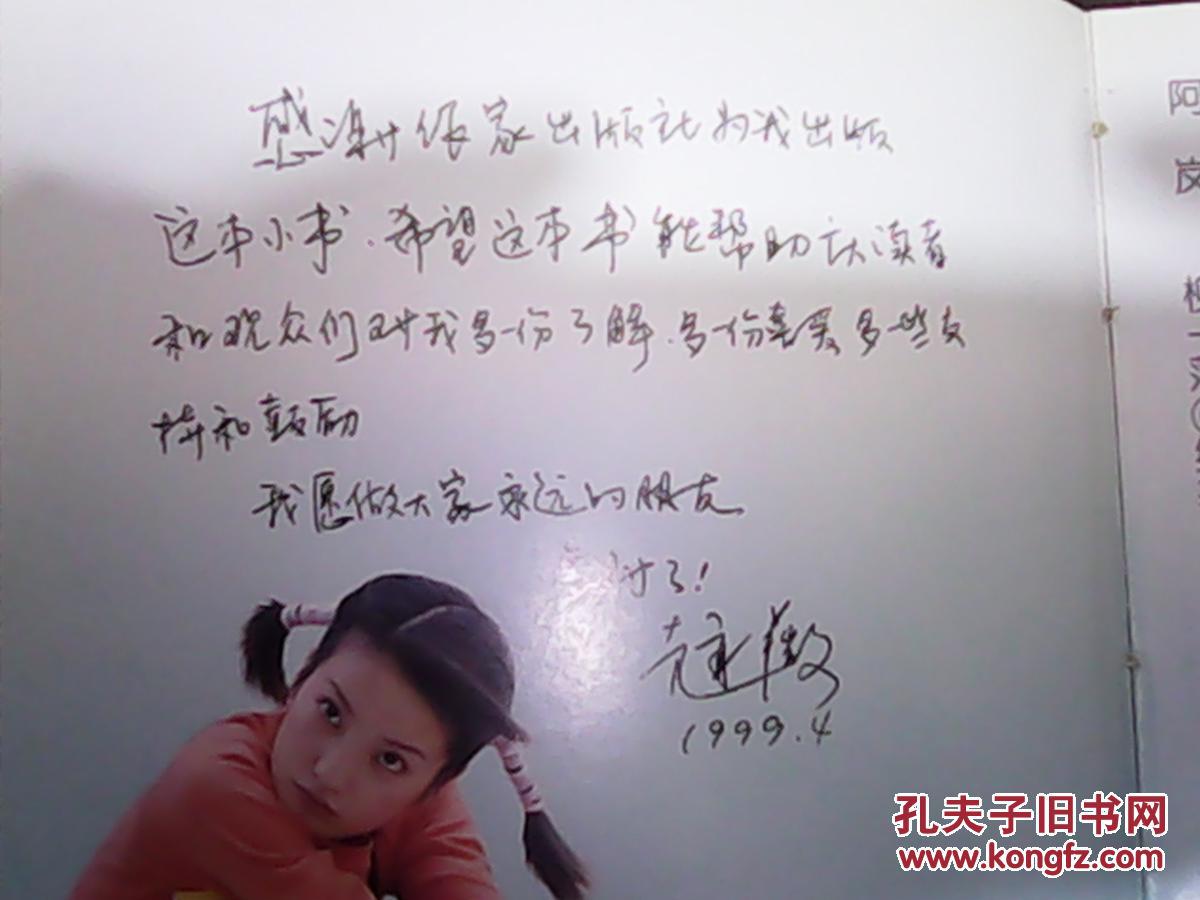 感谢作家出版社为我出版
这本小书、希望这本书能帮助广大读者
和观众们对我多一份了解、多一份喜爱多一些支
持和鼓励
我愿做大家永远的朋友
谢了!
赵薇
1999.4
阿
孔夫子旧书网
www.kongfz.com